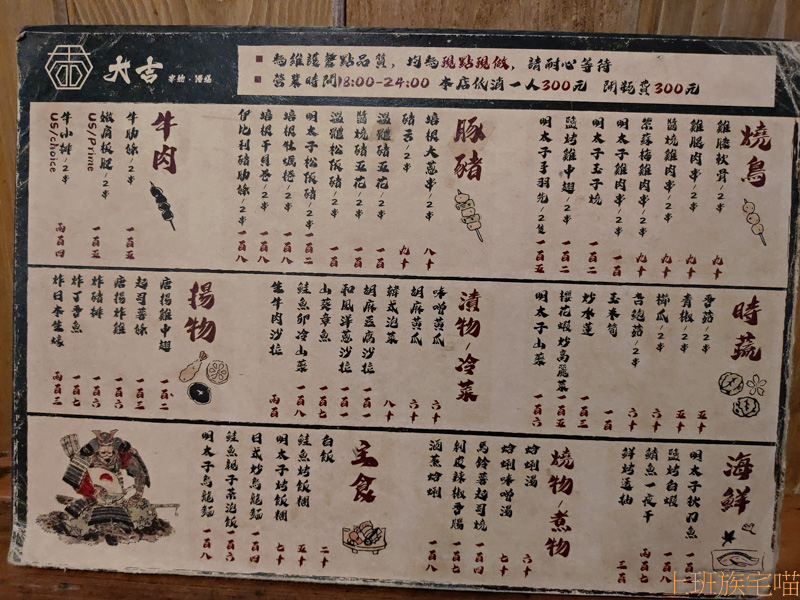 大吉
串燒·酒場
為維護餐點品質，均為現點現做，請耐心等待
營業時間18:00-24:00 本店低消一人300元 開瓶費300元
燒鳥
雞膝軟骨/2串 九十
雞腿肉串/2串 九十
醬燒雞肉串/2串 九十
紫蘇梅雞肉串/2串 九十
明太子雞肉串/2串 一百
明太子玉子燒 一百二
鹽烤雞中翅/2串 一百二
明太子手羽先/2隻 一百五
豚豬
培根大蔥串/2串 八十
豬舌/2串 九十
鹽燒豬五花/2串 一百
醬燒豬五花/2串 一百
鹽燒松阪豬/2串 一百
明太子松阪豬/2串 一百二
培根牡蠣捲/2串 一百八
培根干貝卷/2串 一百八
伊比利豬肋條/2串 一百八
牛肉
牛肋條/2串 一百五
嫩肩板腱/2串 US/Prime 一百五
牛小排/2串 US/choice 兩百四
時蔬
香菇/2串 五十
青椒/2串 五十
櫛瓜/2串 六十
杏鮑菇/2串 六十
玉米筍 一百
炒水蓮 一百三
櫻花蝦炒高麗菜 一百五
明太子山菜 一百六
漬物/冷菜
味噌黃瓜 六十
胡麻黃瓜 六十
韓式泡菜 八十
胡麻豆腐沙拉 一百一
和風洋蔥沙拉 一百一
山葵章魚 一百七
鮭魚卵冷山菜 一百八
生牛肉沙拉 兩百
揚物
唐揚雞中翅 一百二
起司薯條 一百三
唐揚炸雞 一百六
炸豬排 一百六
炸丁香魚 一百七
炸日本生蠔 兩百三
海鮮
明太子秋刀魚 一百二
鹽烤白蝦 一百八
鯖魚一夜干 兩百七
鮮烤透抽 三百
燒物/煮物
蛤蜊湯 六十
蛤蜊味噌湯 七十
馬鈴薯起司燒 一百四
剝皮辣椒香腸 一百七
酒蒸蛤蜊 一百八
主食
白飯 二十
鮭魚烤飯糰 五十
明太子烤飯糰 七十
日式炒烏龍麵 一百四
鮭魚親子茶泡飯 一百六
明太子烏龍麵 一百八
上班族宅喵